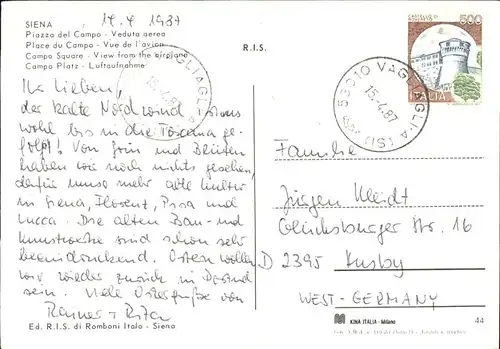 SIENA 14.4 1987
Piazza del Campo - Veduta aerea
Place du Campo - Vue de l'avion
Campo Square - View from the airplane
Campo Platz - Luftaufnahme
R.I.S.
Ihr Lieben,
der kalte Nordwind ist uns
wohl bis in die Toscana ge-
folgt! Von Grün und Blüten
haben wir noch nichts gesehen,
dafür umso mehr alte Kultur
in Siena, Florenz, Pisa und
Lucca. Die alten Bau- und
Kunstwerke sind schon sehr
beeindruckend. Ostern wollen
wir wieder zurück in
sein. Viele Ostergrüße von
Rainer + Rita
Ed. R.I.S. di Romboni Italo - Siena
500
ITALIA
53010 VAGLIAGLI (SI)
15.4.87
Familie
Jürgen
Glücksburger Str. 16
D 2395 Husby
WEST-GERMANY
KINA ITALIA - Milano
44